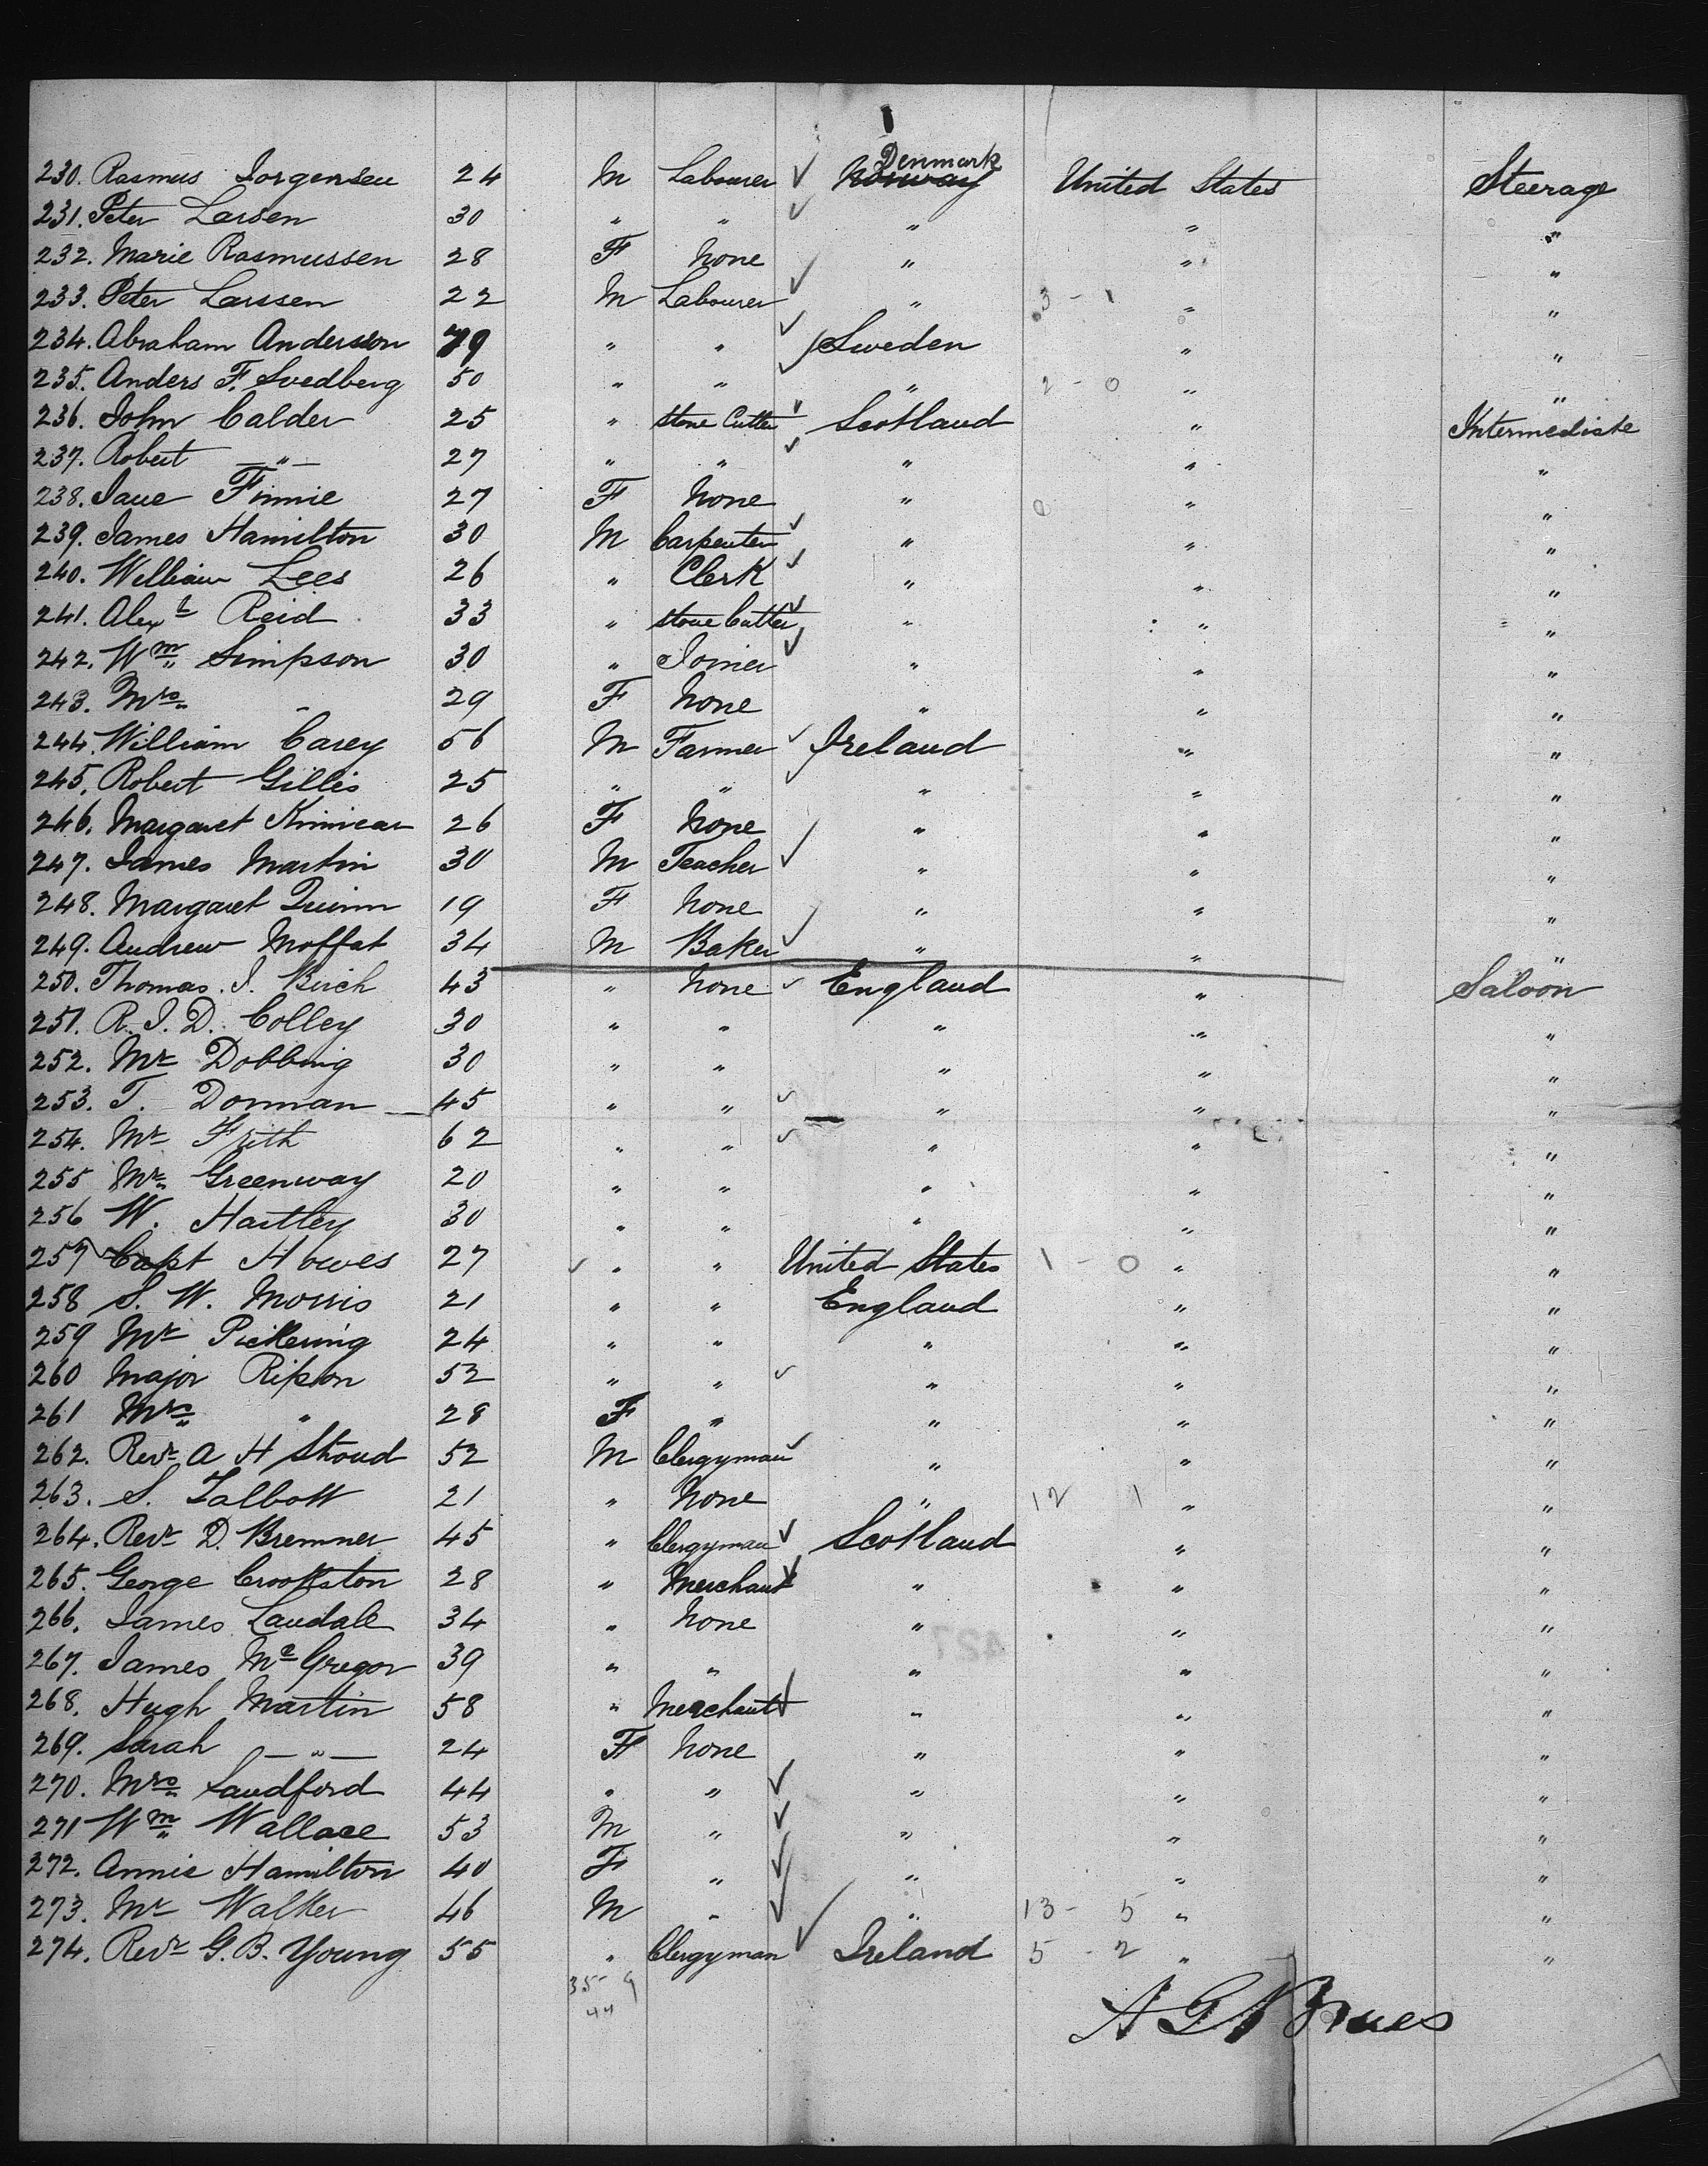 Denmark
230. Rasmus Jorgensen 24 M Labourer ✓ Norway United States Steerage
231. Peter Larsen 30 " " ✓ " " "
232. Marie Rasmussen 28 F None " " "
233. Peter Larssen 22 M Labourer ✓ " 3 - 1 " "
234. Abraham Andersson 79 " " ✓ Sweden " "
235. Anders F. Svedberg 50 " " ✓ " 2 - 0 " "
236. John Calder 25 " Stone Cutter ✓ Scotland " Intermediate
237. Robert —"— 27 " " ✓ " " "
238. Jane Finnie 27 F None " 0 " "
239. James Hamilton 30 M Carpenter ✓ " " "
240. William Lees 26 " Clerk ✓ " " "
241. Alexr Reid 33 " Stone Cutter ✓ " " "
242. Wm Simpson 30 " Joiner ✓ " " "
243. Mrs " 29 F None " " "
244. William Carey 56 M Farmer ✓ Ireland " "
245. Robert Gillis 25 " " ✓ " " "
246. Margaret 26 F None " " "
247. James Martin 30 M Teacher ✓ " " "
248. Margaret Quinn 19 F None " " "
249. Andrew Moffat 34 M Baker ✓ " " "
250. Thomas. J. Birch 43 " None ✓ England " Saloon
251. R. J. D. Colley 30 " " " " "
252. Mr Dobbing 30 " " " " "
253. T. Dornan 45 " " ✓ " " "
254. Mr Frith 62 " " ✓ " " "
255 Mr Greenway 20 " " " " "
256 W. Hartley 30 " " " " "
257 Capt Howes 27 ✓ " " United States 1 - 0 " "
258 S. W. Morris 21 " " England " "
259 Mr Pickering 24 " " " " "
260 Major Ripon 52 " " ✓ " " "
261 Mrs " 28 F " " " "
262. Revr A H Stroud 52 M Clergyman ✓ " " "
263. S. Talbott 21 " None " 12 1 " "
264. Revr D. Bremner 45 " Clergyman ✓ Scotland " "
265. George Crookston 28 " Merchant ✓ " " "
266. James Landale 34 " None " " "
267. James McGregor 39 " " " " "
268. Hugh Martin 58 " Merchant ✓ " " "
269. Sarah —"— 24 F None " " "
270. Mrs Sandford 44 " " ✓ " " "
271 Wm Wallace 53 M " ✓ " " "
272. Annie Hamilton 40 F " ✓ " " "
273. Mr Walker 46 M " ✓ " 13 - 5 " "
274. Revr G. B. Young 55 " Clergyman ✓ Ireland 5 - 2 " "
35 - 9
44